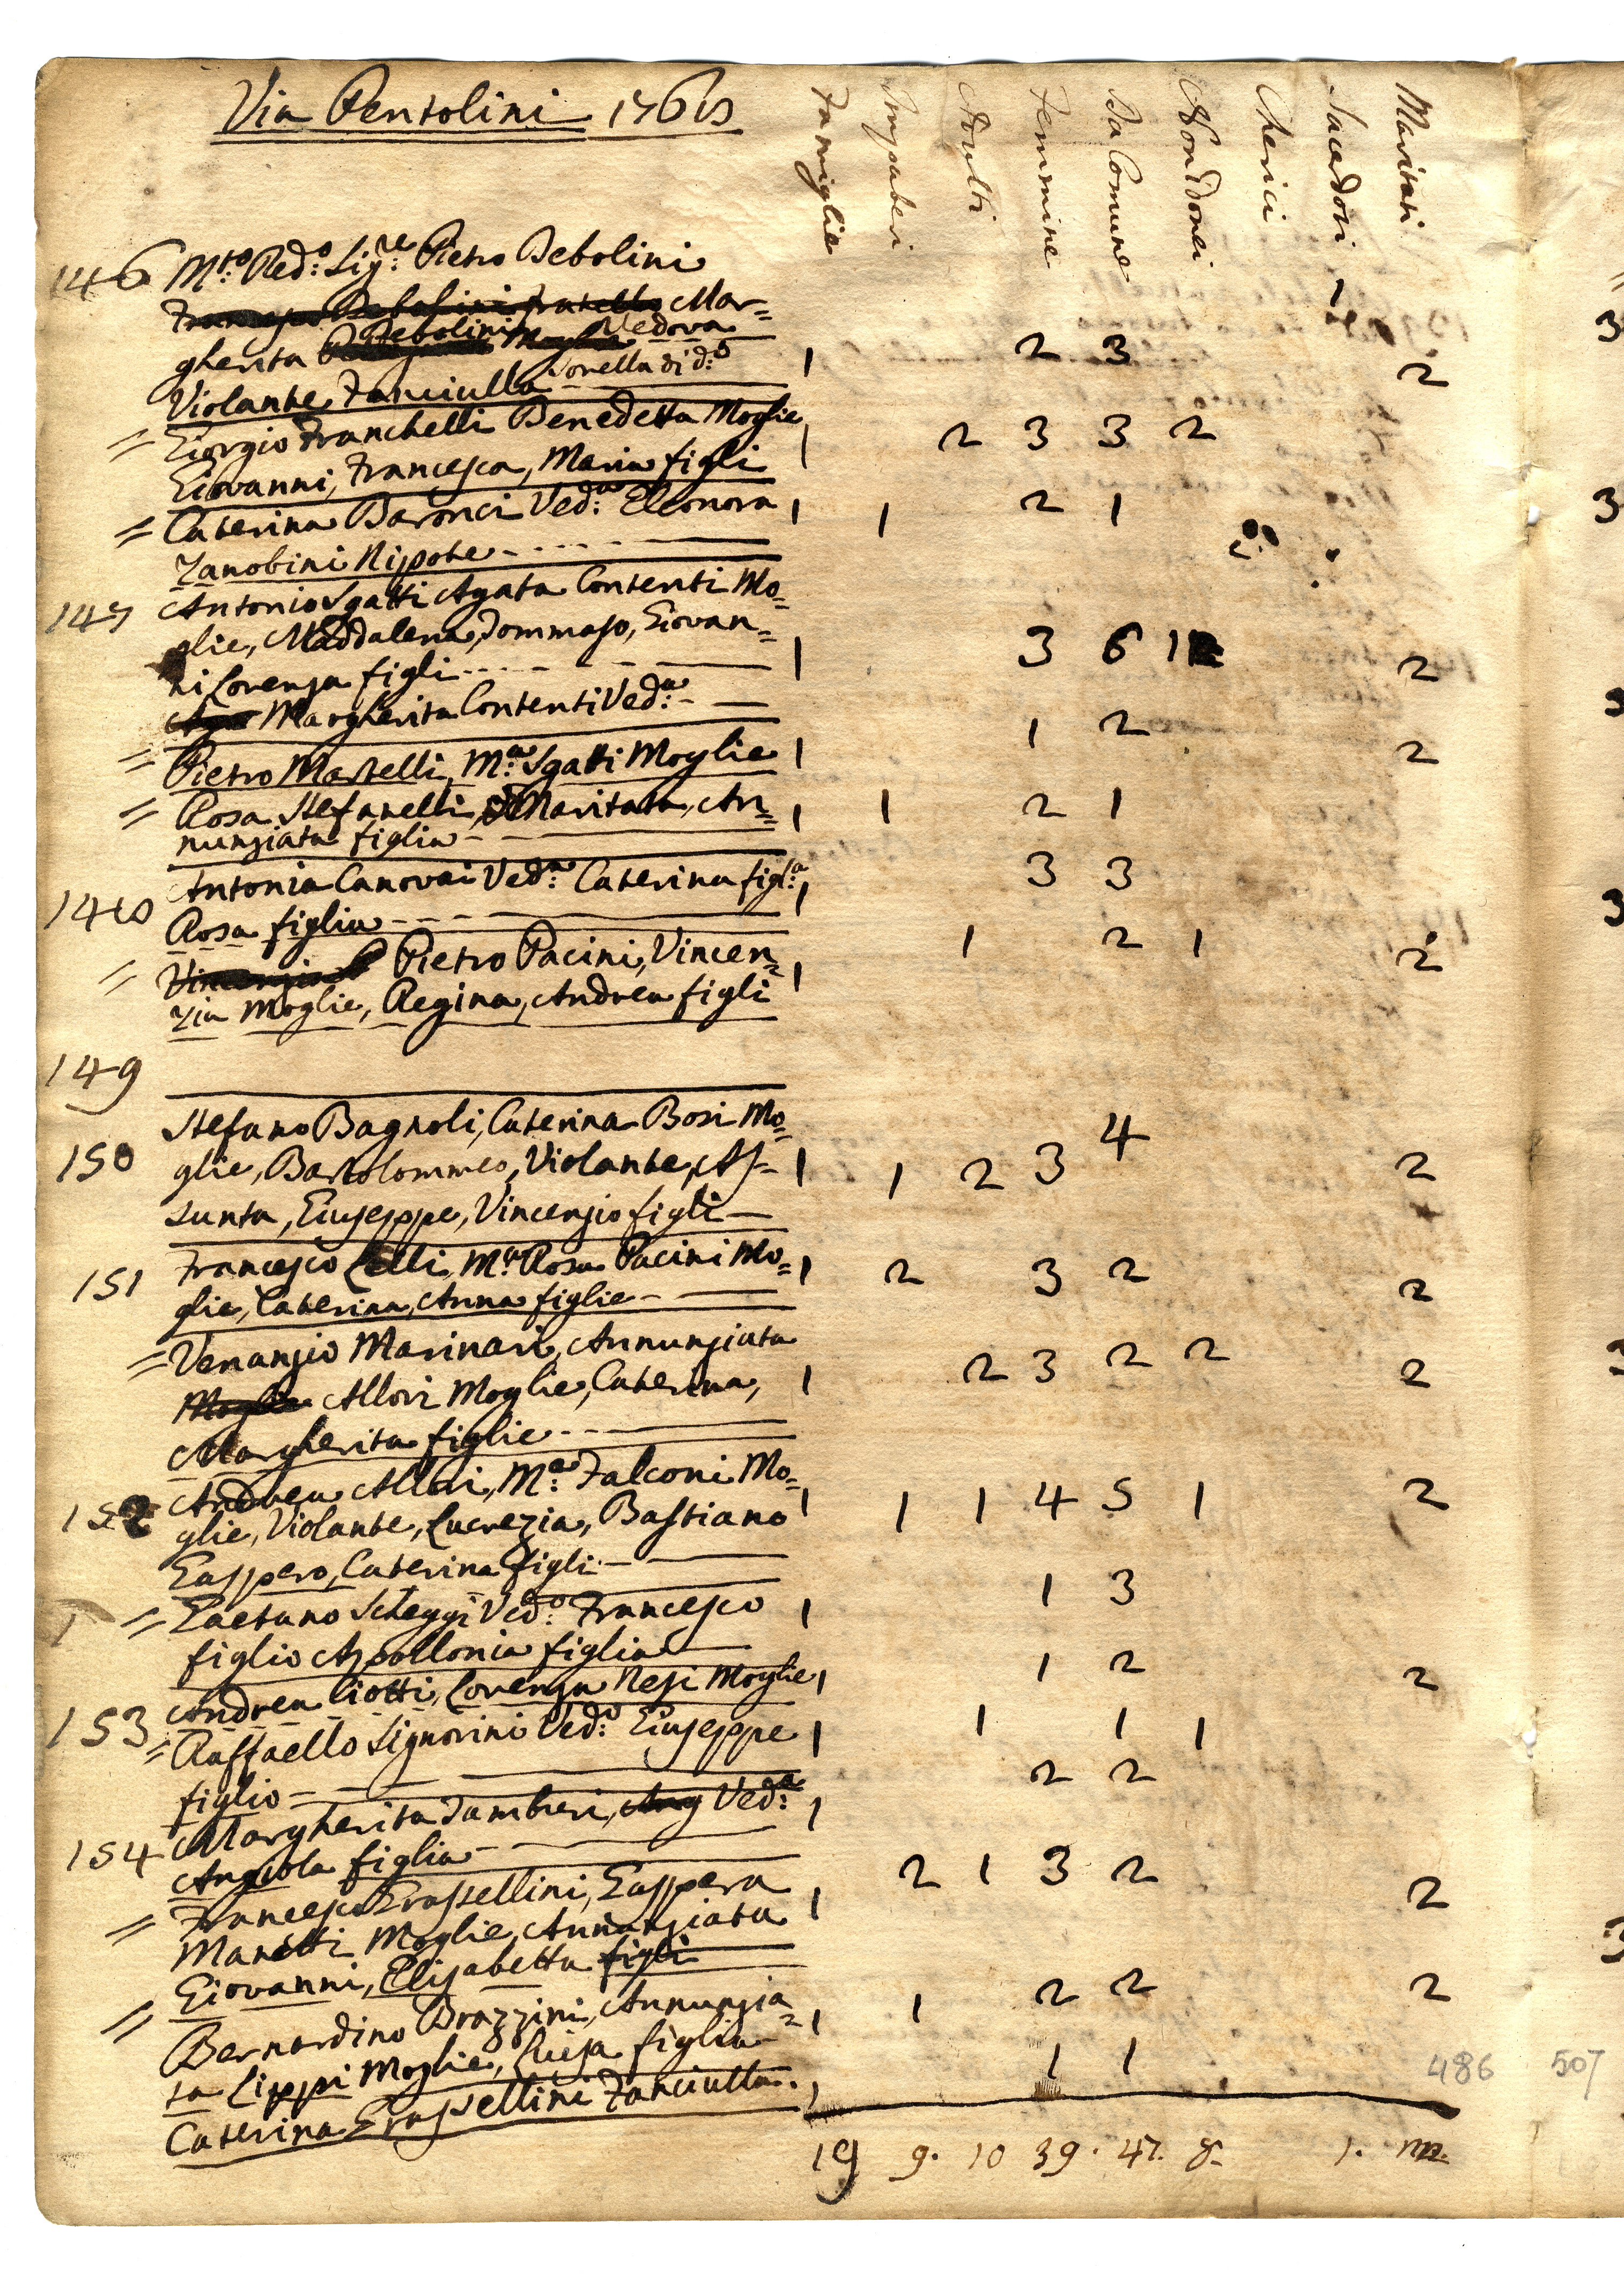 Via Pentolini 1768
Famiglie Impuberi Adulti Femmine Da Comune Non Idonei Cherici Sacerdoti Maritati
146 M:to Red:o Sig:re Pietro Debolini
Francesco Debolini fratello Mar= 1
gherita Debolini Moglie Vedova
Violante Fanciulla Sorella di d:o 1 2 3 2
= Giorgio Franchelli Benedetta Moglie
Giovanni, Francesca, Maria figli 1 2 3 3 2
= Caterina Baronci Ved:a Eleonora 1 1 2 1
Zanobini Nipote
147 Antonio Sgatti Agata Contenti Mo=
glie, Maddalena, Tommaso, Giovan=
ni Lorenza figli 1 3 6 1 2
Margherita Contenti Ved:a
= Pietro Martelli, M:a Sgatti Moglie 1 1 2 2
= Rosa Stefanelli, Maritata, An= 1 1 2 1
nunziata figlia
148 Antonia Canovai Ved:a Caterina figl:a 1 3 3
Rosa figlia
= Pietro Pacini, Vincen= 1 1 2 1 2
zia Moglie, Regina, Andrea figli
149
Stefano Bagnoli, Caterina Bosi Mo=
150 glie, Bartolommeo, Violante, As= 1 1 2 3 4 2
sunta, Giuseppe, Vincenzio figli
151 Francesco Lelli, M:a Rosa Pacini Mo= 1 2 3 2 2
glie, Caterina, Anna figlie
= Venanzio Marinari, Annunziata
Moglie Allori Moglie, Caterina, 1 2 3 2 2 2
Margherita figlie
Andrea Allori, M:a Falconi Mo=
152 glie, Violante, Lucrezia, Bastiano 1 1 1 4 5 1 2
Gaspero, Caterina figli
= Gaetano Scheggi Ved:o Francesco 1 1 3
figlio Apollonia figlia
153 Andrea Ciotti, Lorenza Nesi Moglie 1 1 2 2
= Raffaello Signorini Ved:o Giuseppe 1 1 1 1
figlio
154 Margherita Tamburi, Ang Ved:a 1 2 2
Angiola figlia
= Francesco Grassellini, Gaspera 1 2 1 3 2 2
Manetti Moglie, Annunziata
Giovanni, Elisabetta figli
= Bernardino Brazzini, Annunzia= 1 1 2 2 2
ta Lippi Moglie, Luisa figlia
Caterina Grassellini Fanciulla. 1 1 1
486 507
19 9. 10 39. 47. 8. 1.